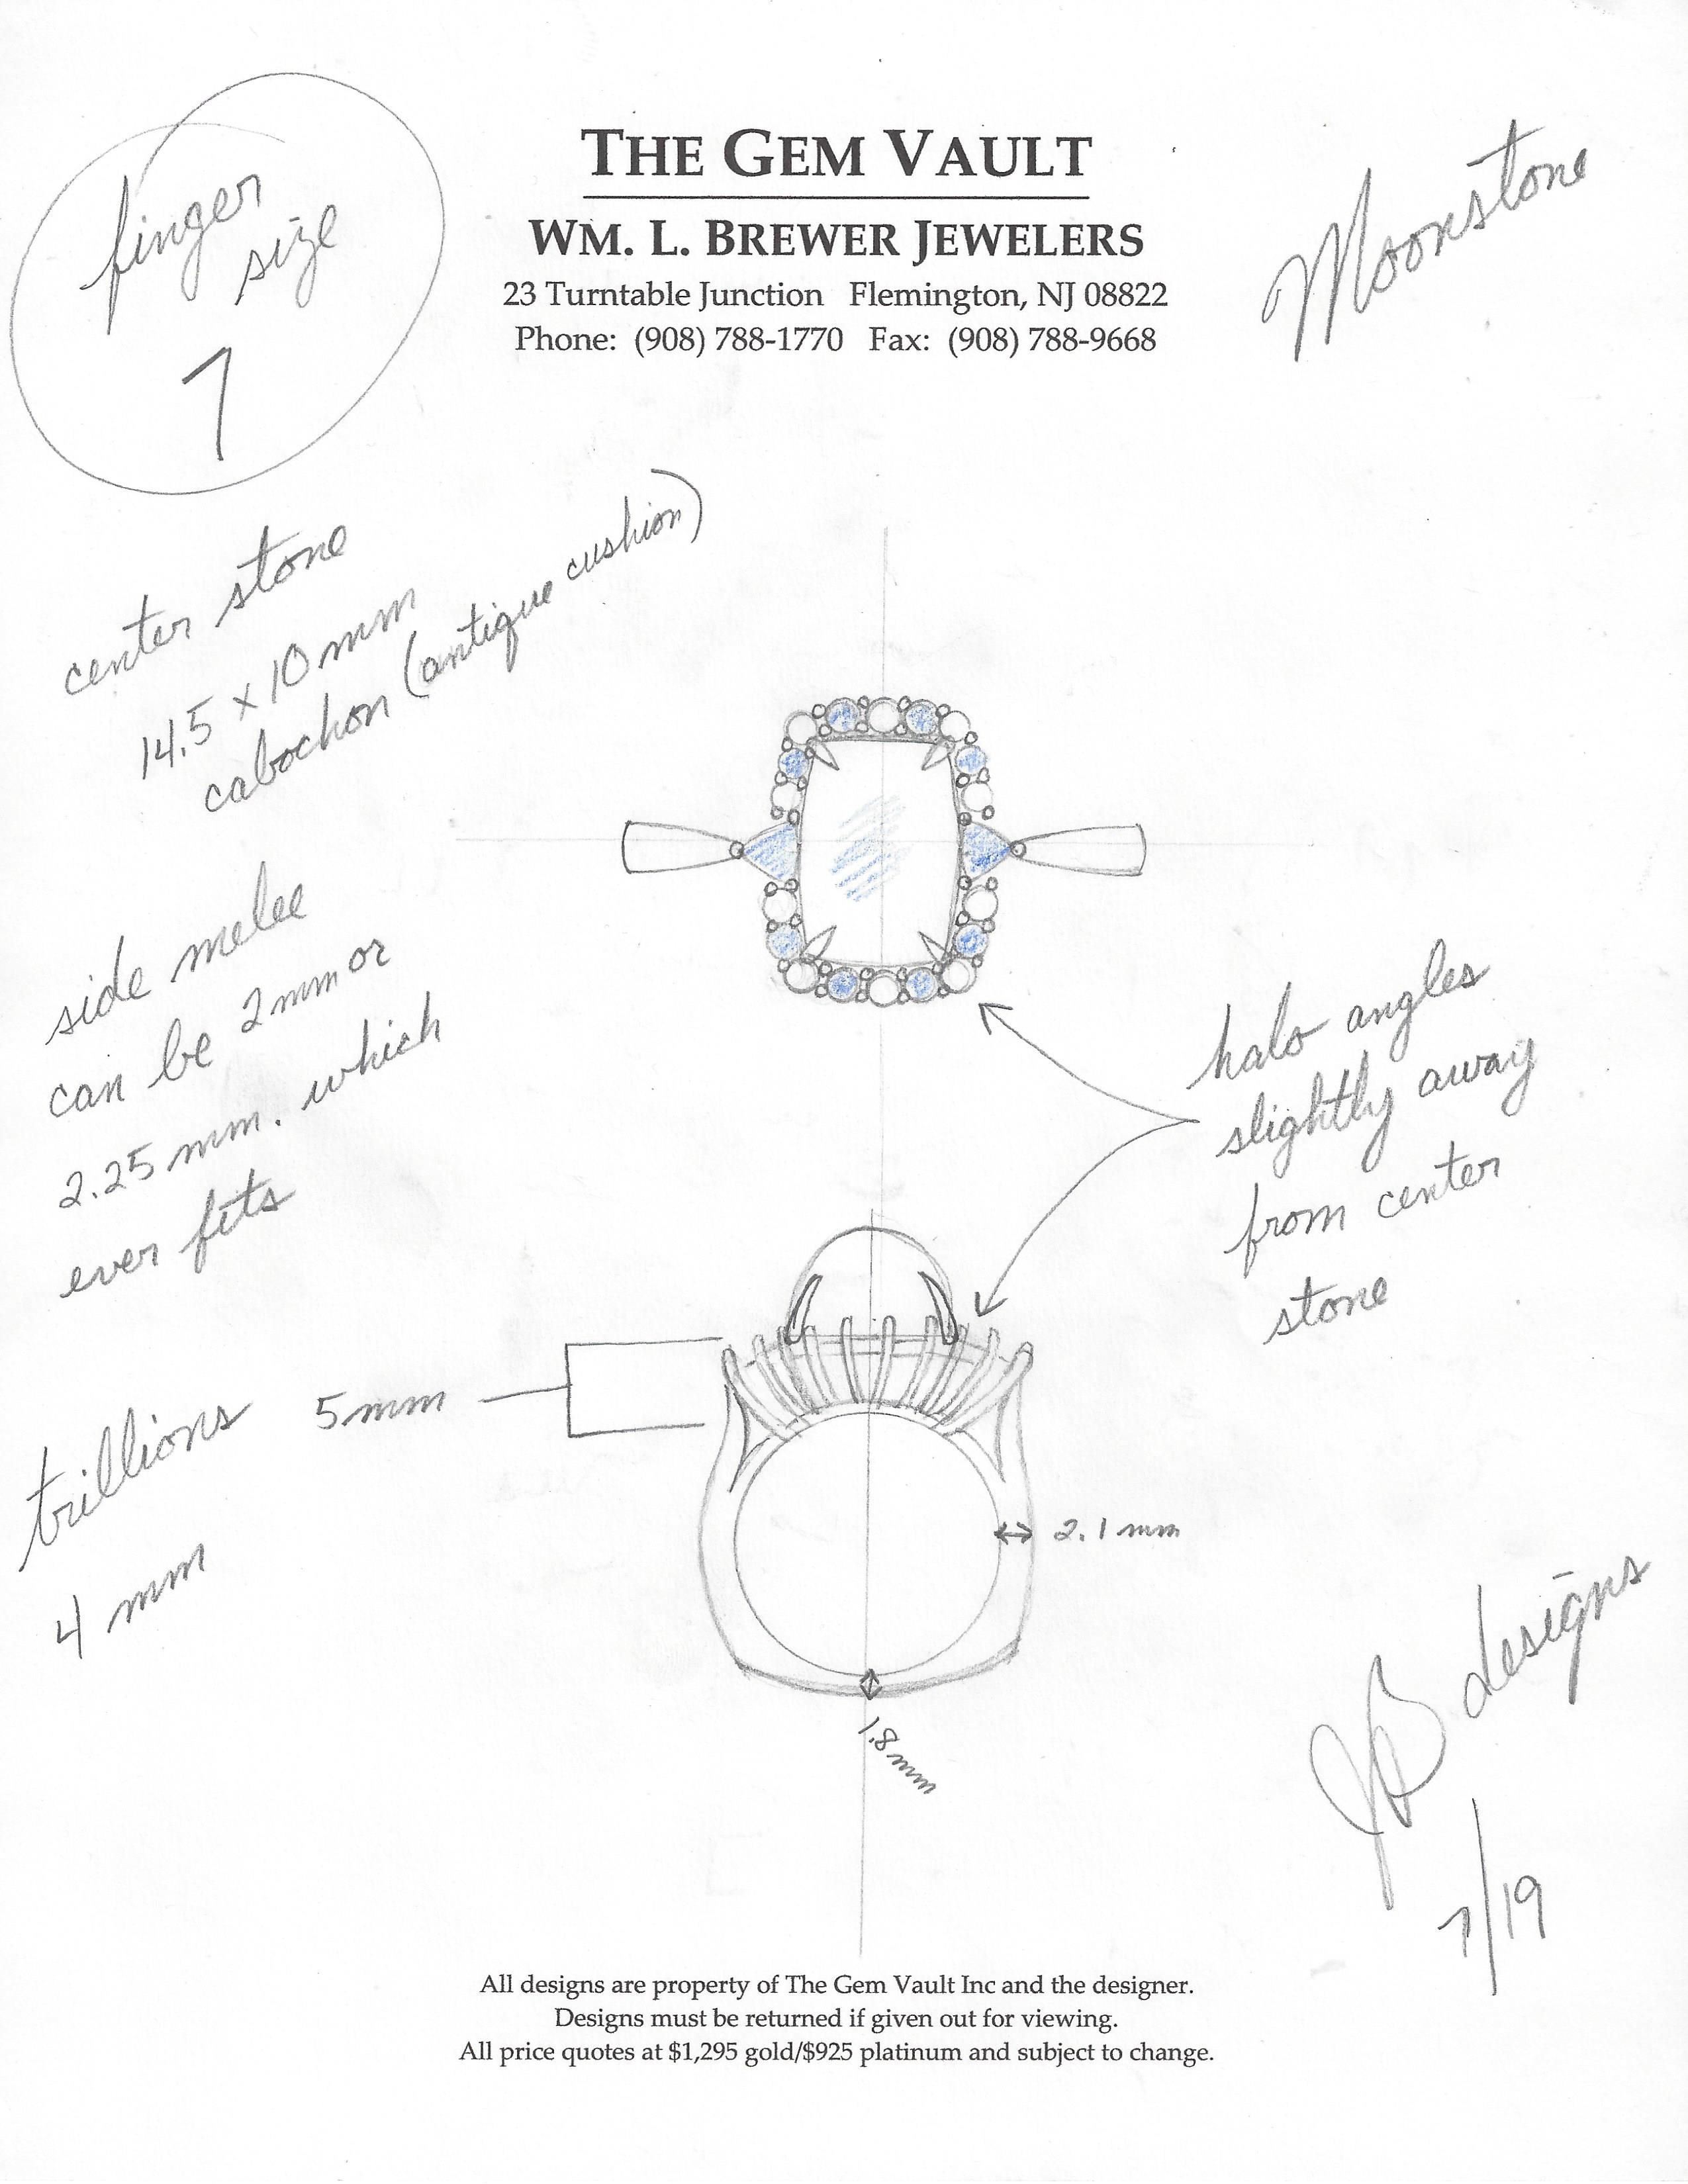 THE GEM VAULT
WM. L. BREWER JEWELERS
23 Turntable Junction Flemington, NJ 08822
Phone: (908) 788-1770 Fax: (908) 788-9668
finger
size
7
Moonstone
center stone
14.5 x 10 mm
cabochon (antique cushion)
side melee
can be 2mm or
2.25 mm. which
ever fits
halo angles
slightly away
from center
stone
trillions
4 mm
5mm
2.1 mm
1.8 mm
JB designs
7/19
All designs are property of The Gem Vault Inc and the designer.
Designs must be returned if given out for viewing.
All price quotes at $1,295 gold/$925 platinum and subject to change.